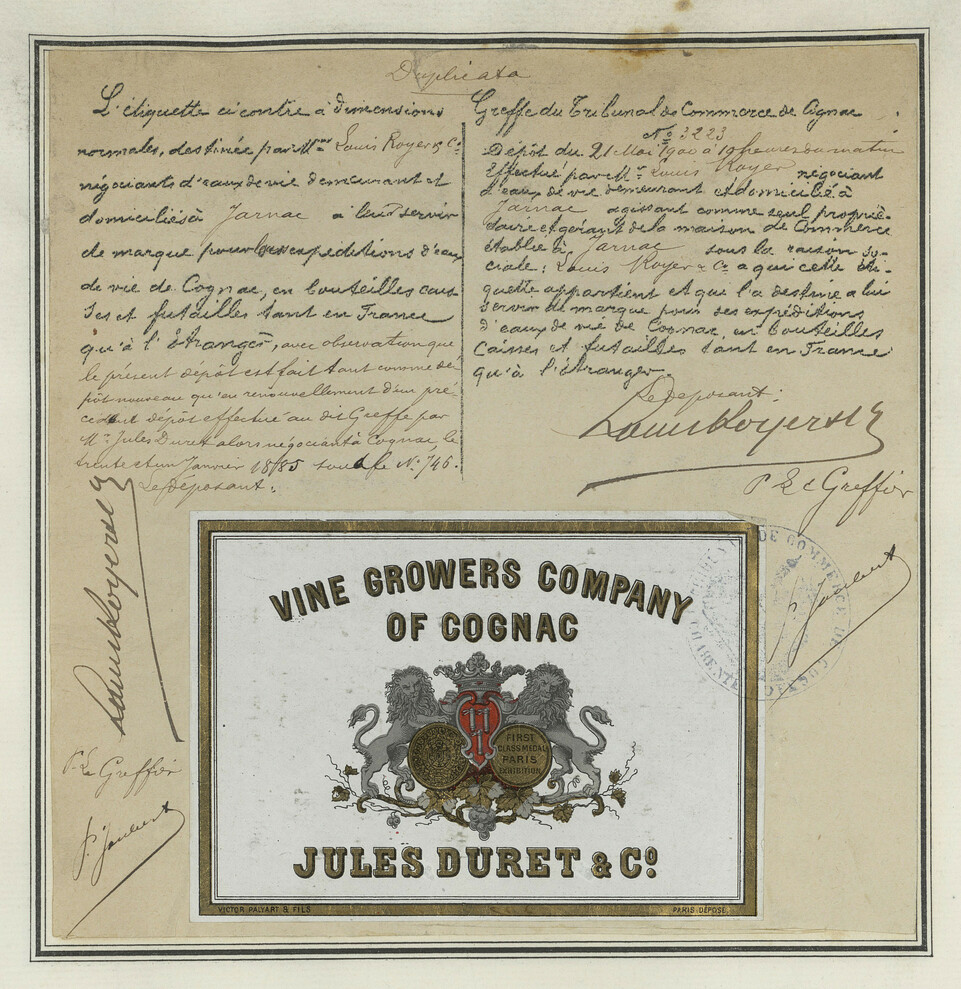 Duplicata
L'étiquette ci contre à dimensions
normales, destinée par Mrs Louis Royer & Cie
négociants d'eaux de vie demeurant et
domiciliés à Jarnac à leur servir
de marque pour les expéditions d'eaux
de vie de Cognac, en bouteilles cais-
ses et futailles tant en France
qu'à l'étranger, avec observation que
le présent dépôt est fait tant comme dé
pôt nouveau qu'en renouvellement d'un pré-
cédent dépôt effectué au dit Greffe par
Mr Jules Duret alors négociant à Cognac, le
trente et un Janvier 1885 sous le No 746.
Le déposant:
Louis Royer & Cie
P. Le Greffier
P. Jaulbert
Greffe du Tribunal de Commerce de Cognac
No 3223
Dépôt du 21 Mai 1900 à 10 heures du matin
Effectué par Mr Louis Royer négociant
d'eaux de vie demeurant et domicilié à
Jarnac agissant comme seul proprié-
taire et gérant de la maison de Commerce
établie à Jarnac sous la raison so-
ciale: Louis Royer & Cie a qui cette éti-
quette appartient et qui l'a destine a lui
servir de marque pour ses expéditions
d'eaux de vie de Cognac en bouteilles
Caisses et futailles tant en France
qu'à l'étranger.
Le déposant:
Louis Royer & Cie
P Le Greffier
TRIBUNAL DE COMMERCE DE COGNAC
CHARENTE
VINE GROWERS COMPANY
OF COGNAC
FIRST
CLASS MEDAL
PARIS
EXHIBITION
JULES DURET & Co.
VICTOR PALYART & FILS
PARIS DÉPOSÉ